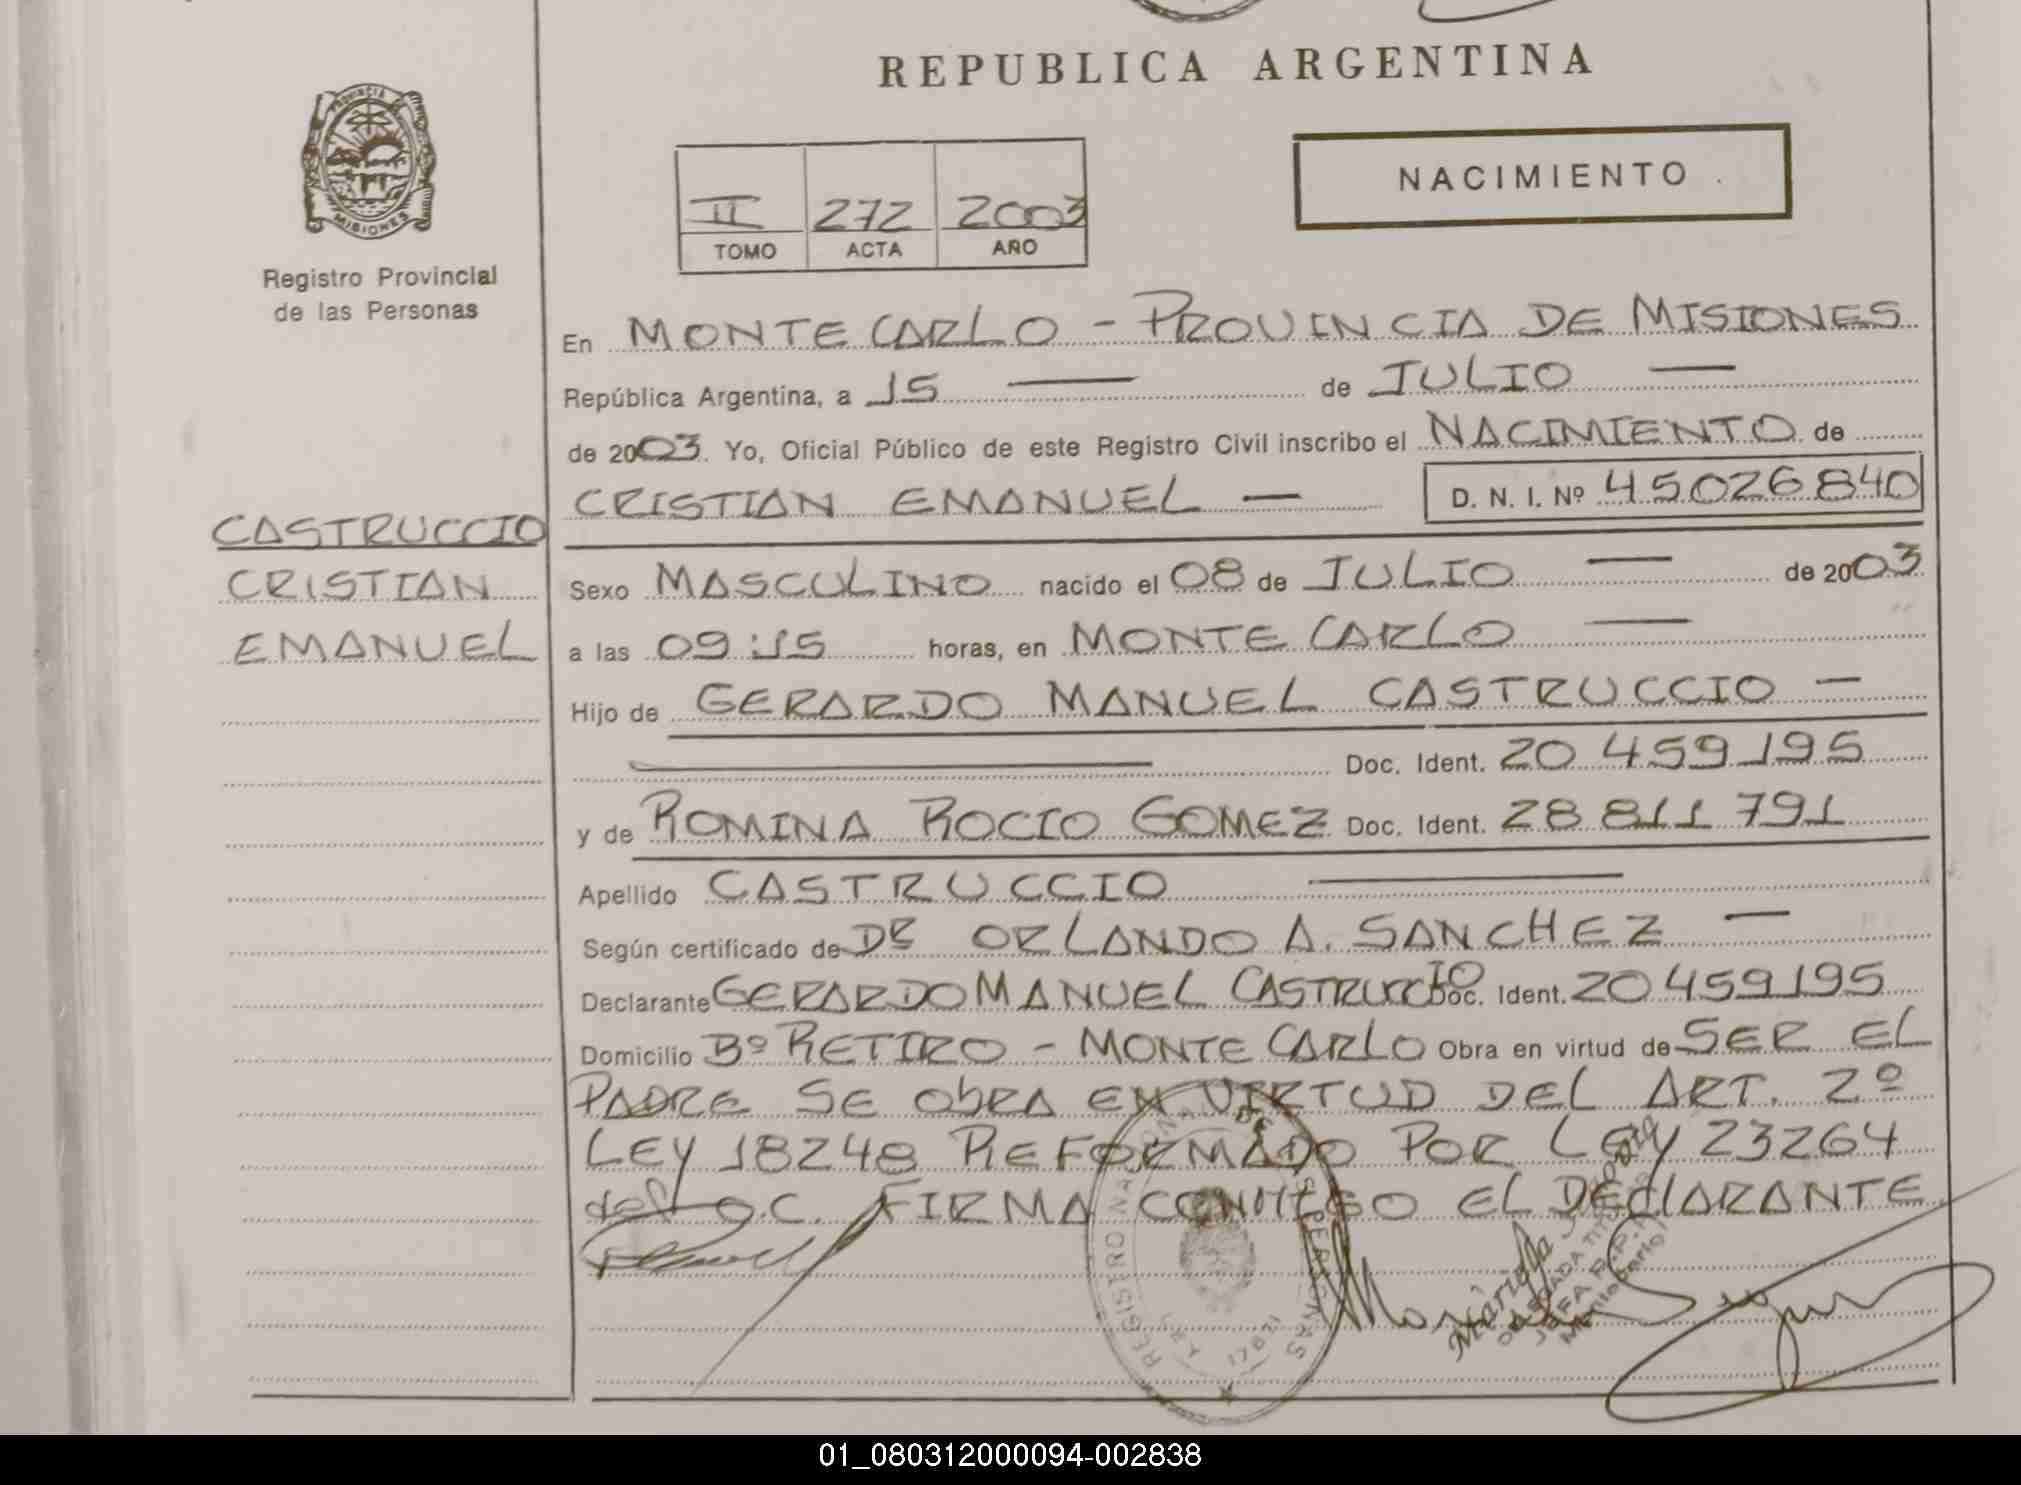 REPUBLICA ARGENTINA
PROVINCIA
MISIONES
Registro Provincial
de las Personas
NACIMIENTO
II 272 2003
TOMO ACTA AÑO
En MONTE CARLO - PROVINCIA DE MISIONES
República Argentina, a 15 — de JULIO —
de 2003. Yo, Oficial Público de este Registro Civil inscribo el NACIMIENTO de
CRISTIAN EMANUEL — D. N. I. Nº 45026840
CASTRUCCIO
CRISTIAN
EMANUEL
Sexo MASCULINO nacido el 08 de JULIO — de 2003
a las 09:15 horas, en MONTE CARLO —
Hijo de GERARDO MANUEL CASTRUCCIO —
Doc. Ident. 20 459 195
y de ROMINA ROCIO GOMEZ Doc. Ident. 28 811 791
Apellido CASTRUCCIO —
Según certificado de DR ORLANDO A. SANCHEZ —
Declarante GERARDO MANUEL CASTRUCCIO Doc. Ident. 20 459 195
Domicilio Bº RETIRO - MONTE CARLO Obra en virtud de SER EL
PADRE SE ObRA EN VIRTUD DEL ART. 2º
LEY 18248 REFORMADO POR LEY 23264
del C.C. FIRMA CONMIGO EL DEClARANTE
REGISTRO NACIONAL DE LAS PERSONAS
LEY 17671
Mariela
DELEGADA
JEFA R.P.P.
Montecarlo
01_080312000094-002838